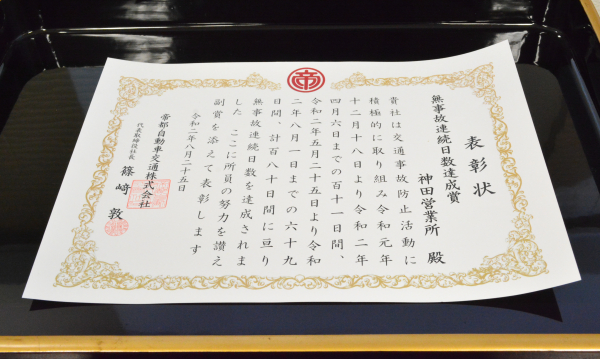 表彰状
無事故連続日数達成賞
神田営業所 殿
貴社は交通事故防止活動に
積極的に取り組み令和元年
十二月十八日より令和二年
四月六日までの百十一日間、
令和二年五月二十五日より令和
二年八月一日までの六十九
日間、計百八十日間に亘り
無事故連続日数を達成されま
した ここに所員の努力を讃え
副賞を添えて表彰します
令和二年八月二十五日
帝都自動車交通株式会社
代表取締役社長 篠﨑 敦